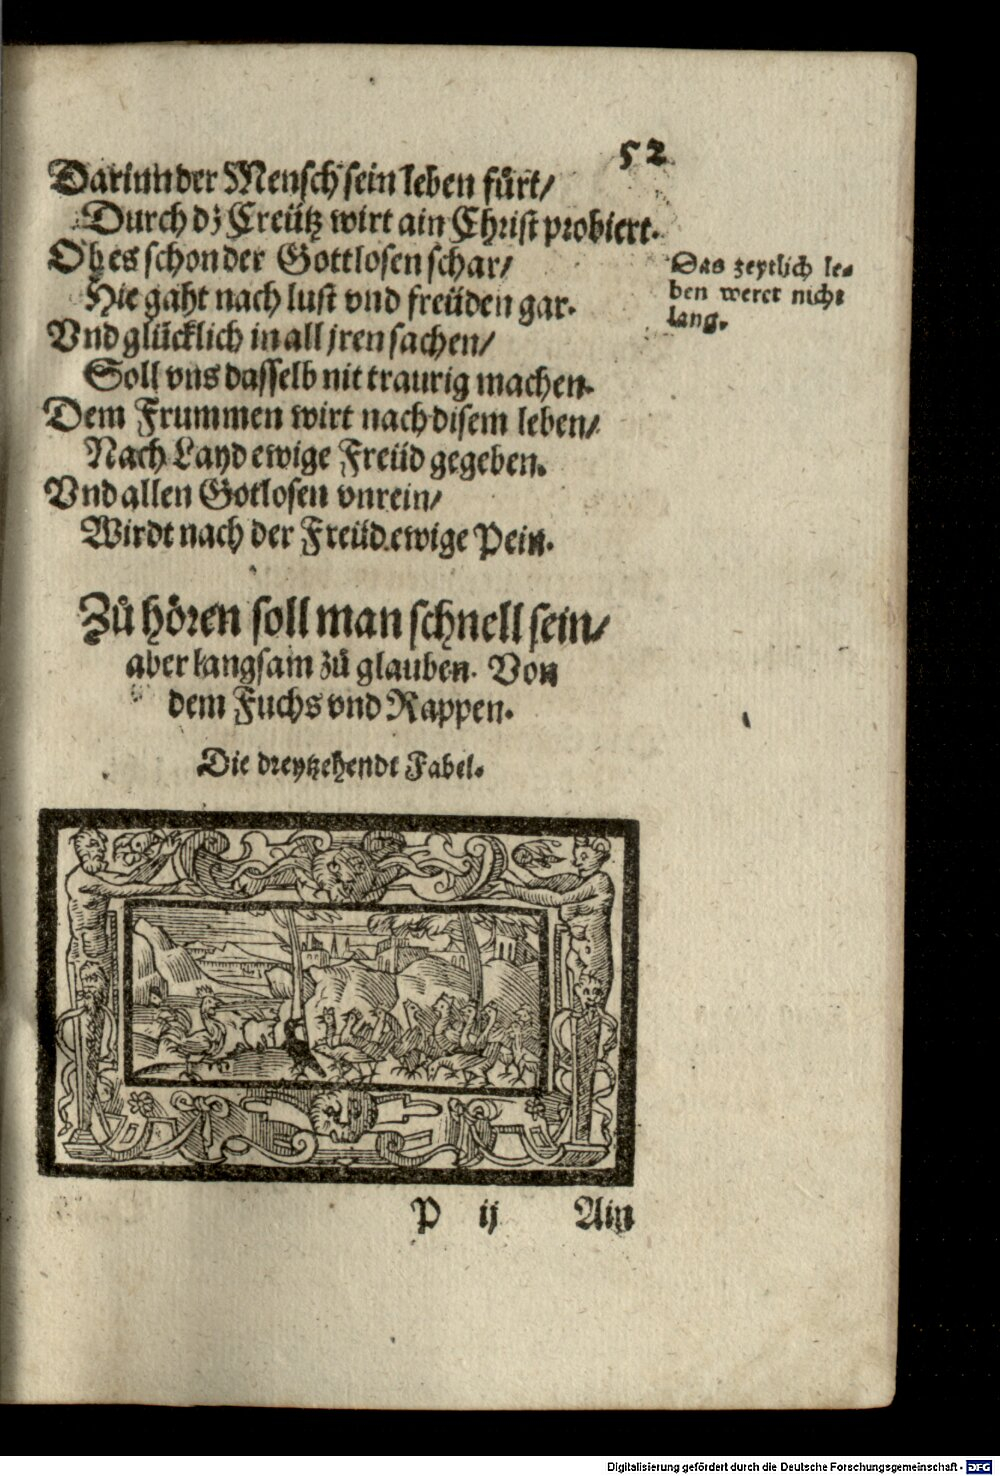 52
Darinn der Mensch sein leben fürt/
Durch dz Creütz wirt ain Christ probiert.
Ob es schon der Gottlosen schar/
Hie gaht nach lust vnd freüden gar.
Vnd glücklich in all jren sachen/
Soll vns dasselb nit traurig machen.
Dem Frummen wirt nach disem leben/
Nach Layd ewige Freüd gegeben.
Vnd allen Gotlosen vnrein/
Wirdt nach der Freüd ewige Pein.
Das zeytlich le-
ben weret nicht
lang.
Zů hören soll man schnell sein/
aber langsam zů glauben. Von
dem Fuchs vnd Rappen.
Die dreytzehendt Fabel.
P ij Ain
Digitalisierung gefördert durch die Deutsche Forschungsgemeinschaft - DFG